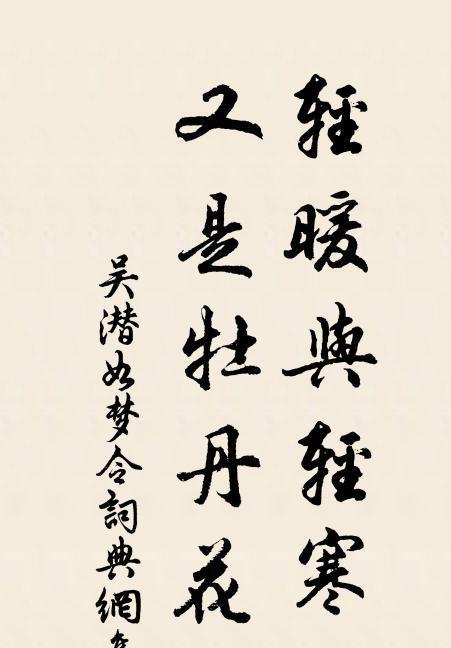 輕暖與輕寒
又是牡丹花
吴潜如梦令詞典網